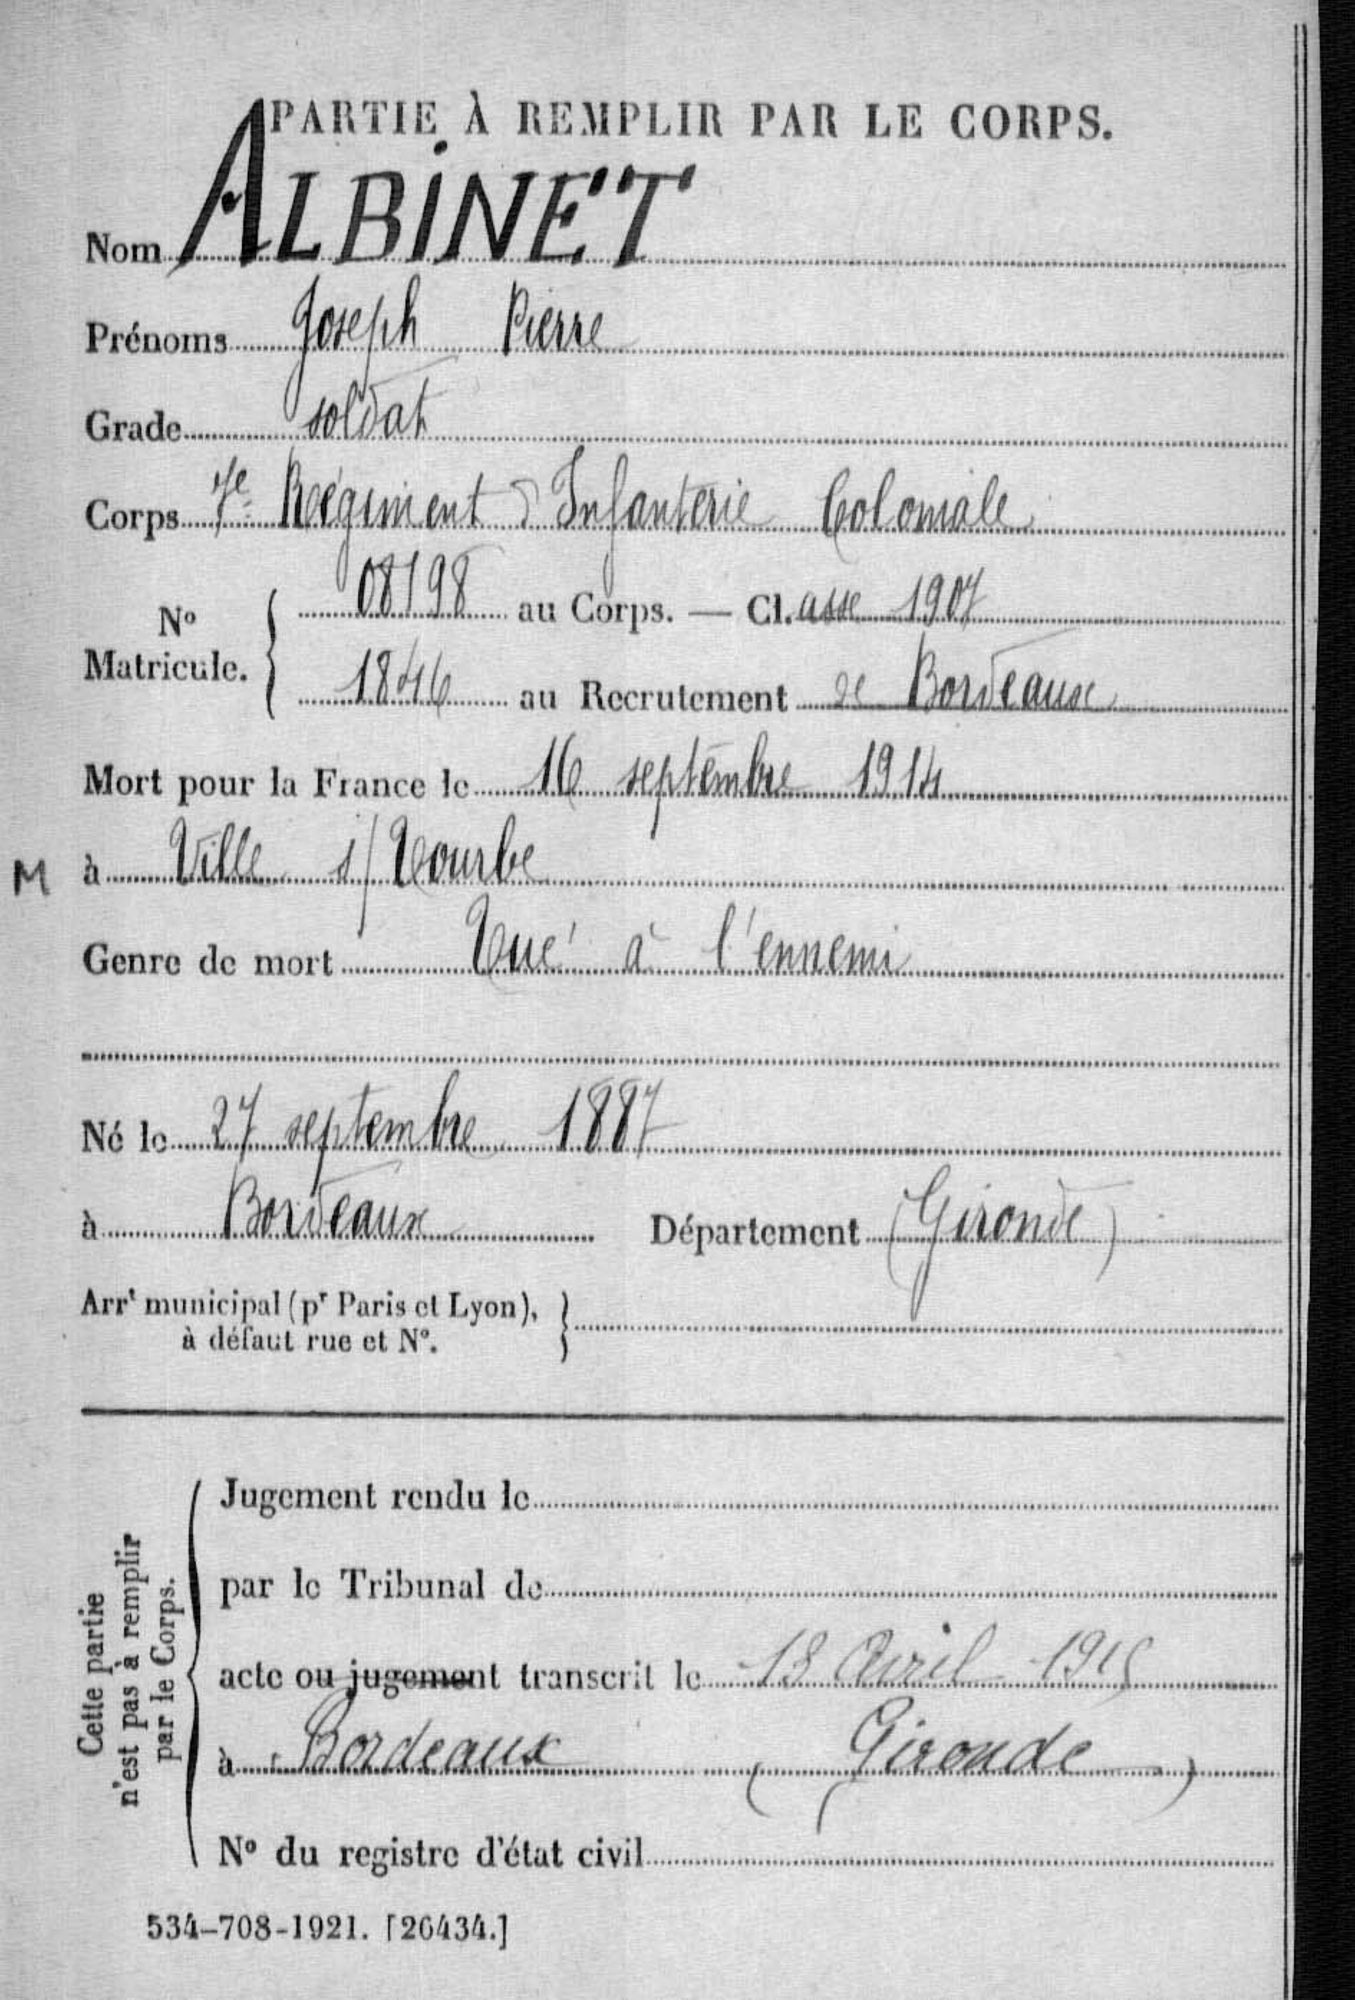 PARTIE À REMPLIR PAR LE CORPS.
Nom ALBINET
Prénoms Joseph Pierre
Grade soldat
Corps 7e Régiment d'Infanterie Coloniale
No Matricule. 08198 au Corps. — Cl.asse 1907
1846 au Recrutement de Bordeaux
Mort pour la France le 16 septembre 1914
M à Ville s/ Tourbe
Genre de mort Tué à l'ennemi
Né le 27 septembre 1887
à Bordeaux Département (Gironde)
Arrt municipal (pr Paris et Lyon),
à défaut rue et No.
Cette partie
n'est pas à remplir
par le Corps.
Jugement rendu le
par le Tribunal de
acte ou jugement transcrit le 13 Avril 1915
à Bordeaux (Gironde)
No du registre d'état civil
534-708-1921. [26434.]